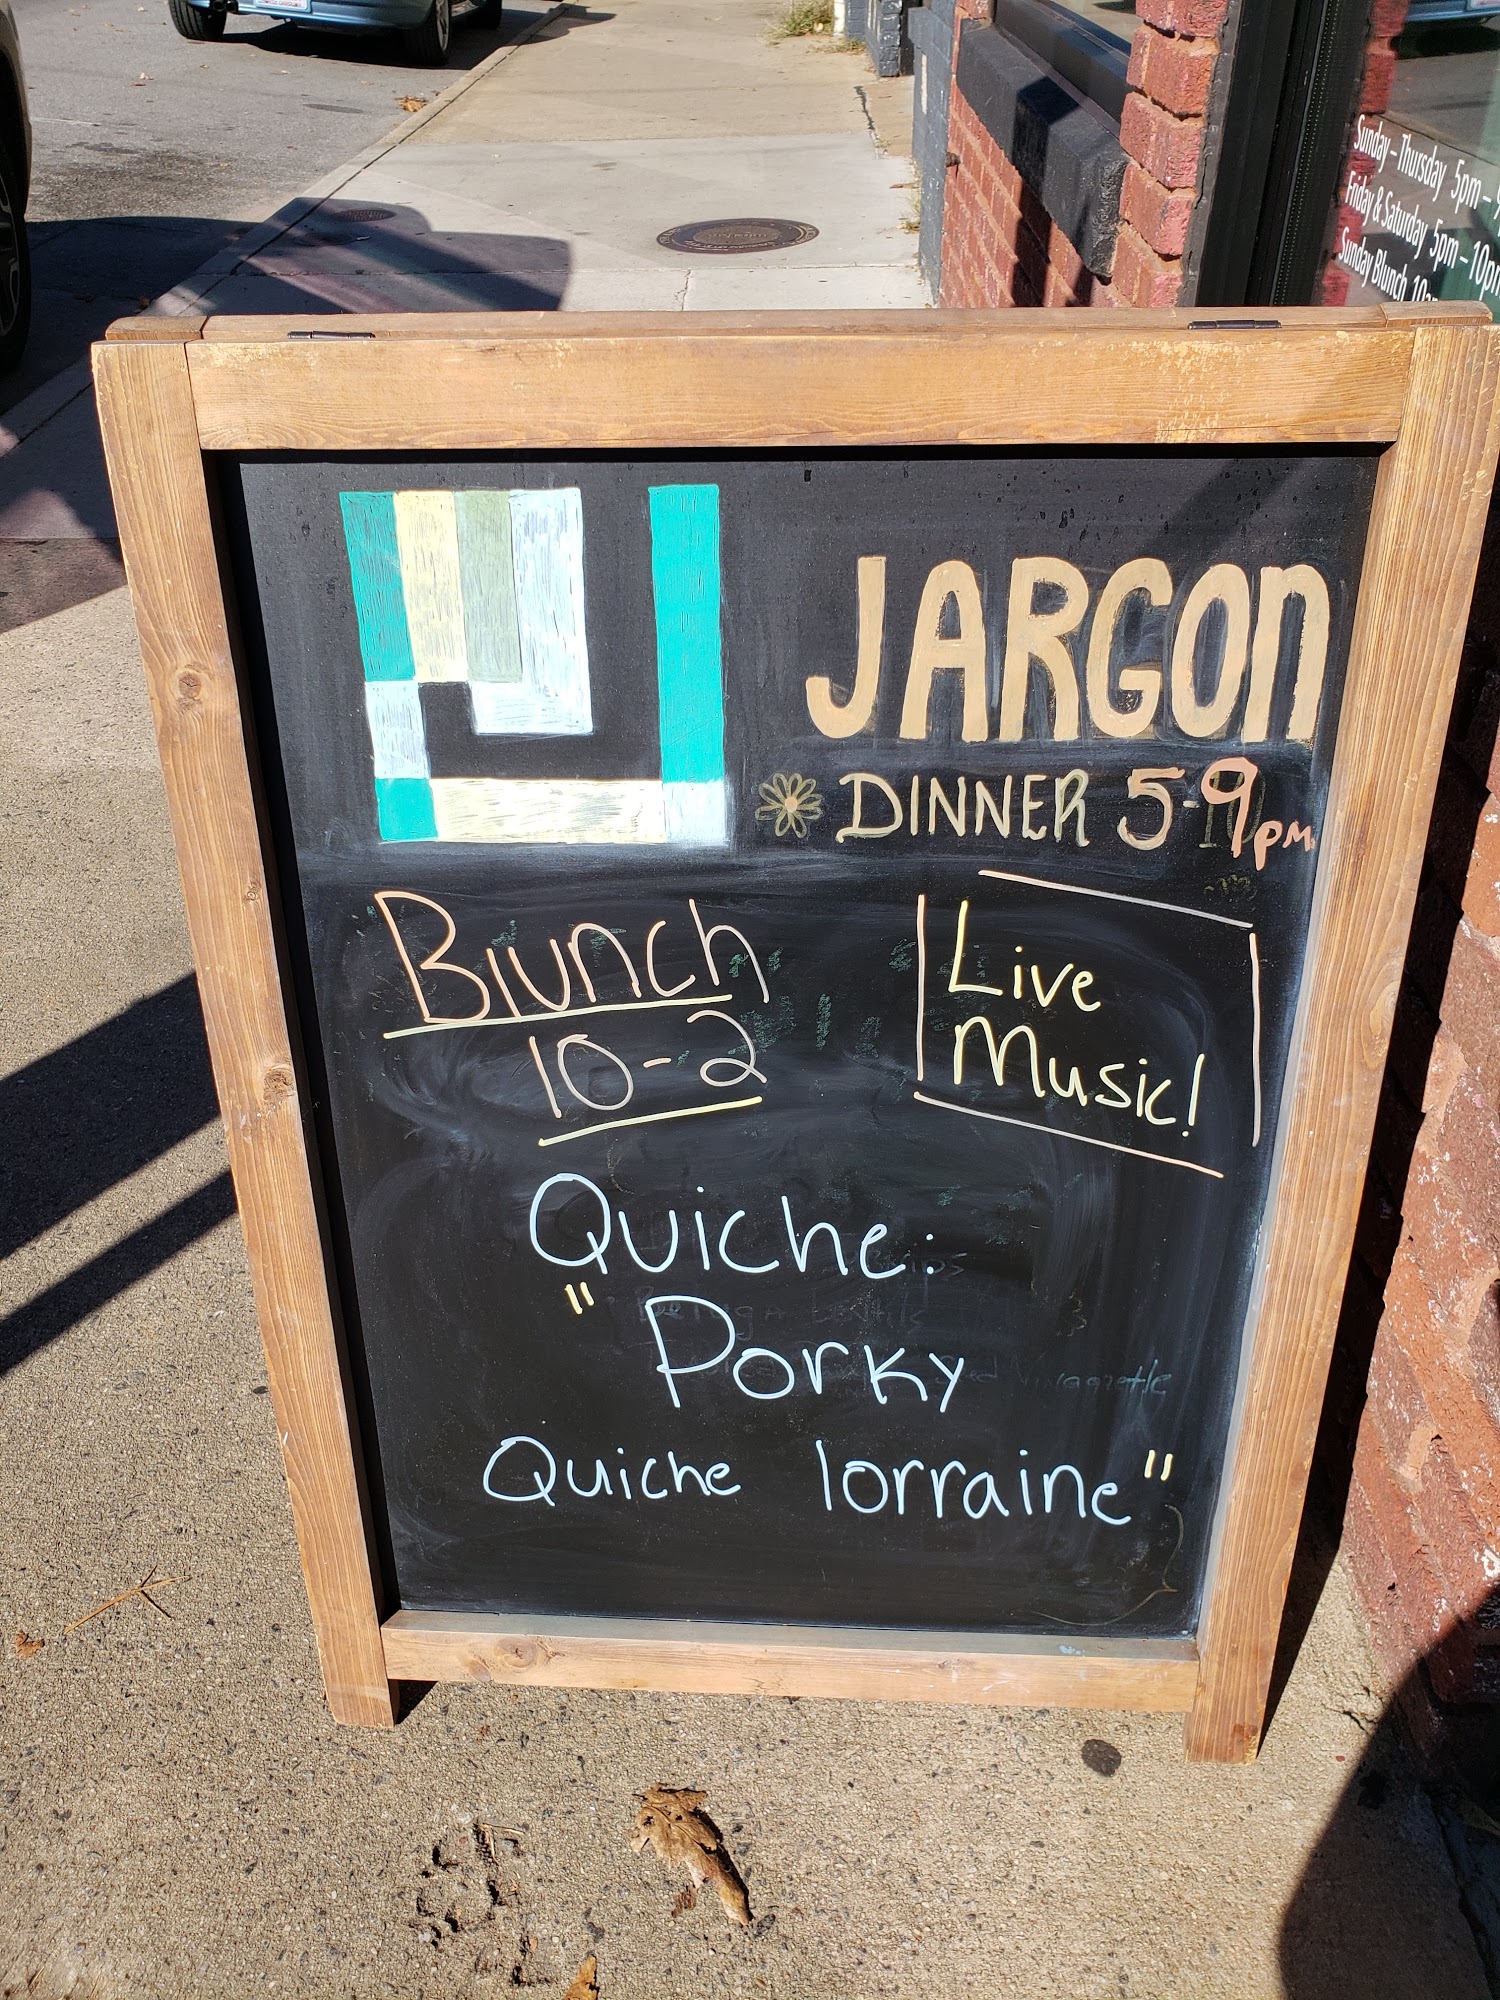 Sunday – Thursday 5pm –
Friday & Saturday 5pm – 10pm
Sunday Blunch
JARGON
DINNER 5-9pm
Blunch
10-2
Live
Music!
Quiche:
"Porky
Quiche lorraine"